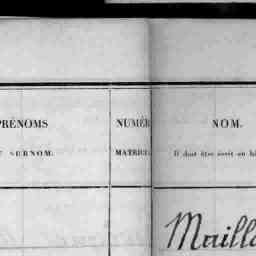 PRÉNOMS
ET SURNOM.
NUMÉR
MATRICU
NOM.
Il doit être écrit en bâ
Mailla